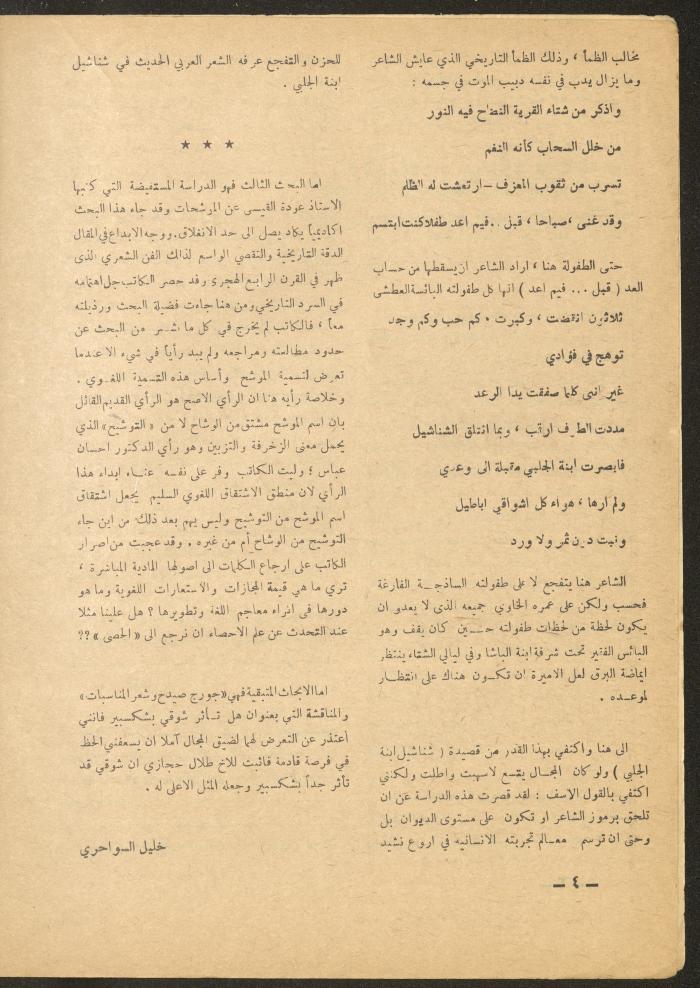 مخالب الظمأ ، وذلك الظمأ التاريخي الذي عايش الشاعر
وما يزال يدب في نفسه دبيب الموت في جسمه :
واذكر من شتاء القرية النضاح فيه النور
من خلل السحاب كأنه النغم
تسرب من ثقوب المعزف – ارتعشت له الظلم
وقد غنى ، صباحا ، قبل .. فيم اعد طفلا كنت ابتسم
حتى الطفولة هنا ، اراد الشاعر ان يسقطها من حساب
العد ( قبل ... فيم اعد ) انها كل طفولته البائسة العطشى
ثلاثون انقضت ، وكبرت . كم حب وكم وجد
توهج في فؤادي
غير انى كلما صفقت يدا الرعد
مددت الطرف ارقب ، وبما ائتلق الشناشيل
فابصرت ابنة الجلبي مقبلة الى وعدي
ولم ارها ، هواء كل اشواقي اباطيل
ونبت دون ثمر ولا ورد
الشاعر هنا يتفجع لا على طفولته الساذجة الفارغة
فحسب ولكن على عمره الخاوي جميعه الذى لا يعدو ان
يكون لحظة من لحظات طفولته حين كان يقف وهو
البائس الفقير تحت شرفة ابنة الباشا وفي ليالي الشتاء ينتظر
ايماضة البرق لعل الاميرة ان تكون هناك على انتظار
لموعده .
الى هنا واكتفي بهذا القدر من قصيدة ( شناشيل ابنة
الجلبي ) ولو كان المجال يتسع لاسهبت واطلت ولكني
اكتفي بالقول الاسف : لقد قصرت هذه الدراسة عن ان
تلحق برموز الشاعر او تكون على مستوى الديوان بل
وحتى ان ترسم معالم تجربته الانسانيه في اروع نشيد
للحزن والتفجع عرفه الشعر العربي الحديث في شناشيل
ابنة الجلبي .
★ ★ ★
اما البحث الثالث فهو الدراسة المستفيضة التي كتبها
الاستاذ عودة القيسى عن الموشحات وقد جاء هذا البحث
اكاديمياً يكاد يصل الى حد الانغلاق. ووجه الابداع في المقال
الدقة التاريخية والتقصي الواسع لذالك الفن الشعري الذى
ظهر في القرن الرابع الهجري وقد حصر الكاتب جل اهتمامه
في السرد التاريخي ومن هنا جاءت فضيلة البحث ورذيلته
معاً ، فالكاتب لم يخرج في كل ما نشر من البحث عن
حدود مطالعته ومراجعه ولم يبد رأياً في شيء الا عندما
تعرض لتسمية الموشح وأساس هذه التسمية اللغوي .
وخلاصة رأيه هنا ان الرأي الاصح هو الرأي القديم القائل
بان اسم الموشح مشتق من الوشاح لا من « التوشيح » الذي
يحمل معنى الزخرفة والتزيين وهو رأي الدكتور احسان
عباس ؛ وليت الكاتب وفر على نفسه عناء ابداء هذا
الرأي لان منطق الاشتقاق اللغوي السليم يجعل اشتقاق
اسم الموشح من التوشيح وليس يهم بعد ذلك من اين جاء
التوشيح من الوشاح أم من غيره . وقد عجبت من اصرار
الكاتب على ارجاع الكلمات الى اصولها المادية المباشرة ،
ترى ما هي قيمة المجازات والاستعارات اللغوية وما هو
دورها في اثراء معاجم اللغة وتطويرها ؟ هل علينا مثلا
عند التحدث عن علم الاحصاء ان نرجع الى « الحصى » ؟؟
اما الابحاث المتبقية فهي « جورج صيدح وشعر المناسبات »
والمناقشة التي بعنوان هل تأثر شوقي بشكسبير فانني
أعتذر عن التعرض لها لضيق المجال آملا ان يسعفني الحظ
في فرصة قادمة فاثبت للاخ طلال حجازي ان شوقي قد
تأثر جداً بشكسبير وجعله المثل الاعلى له .
خليل السواحري
– ٤ –